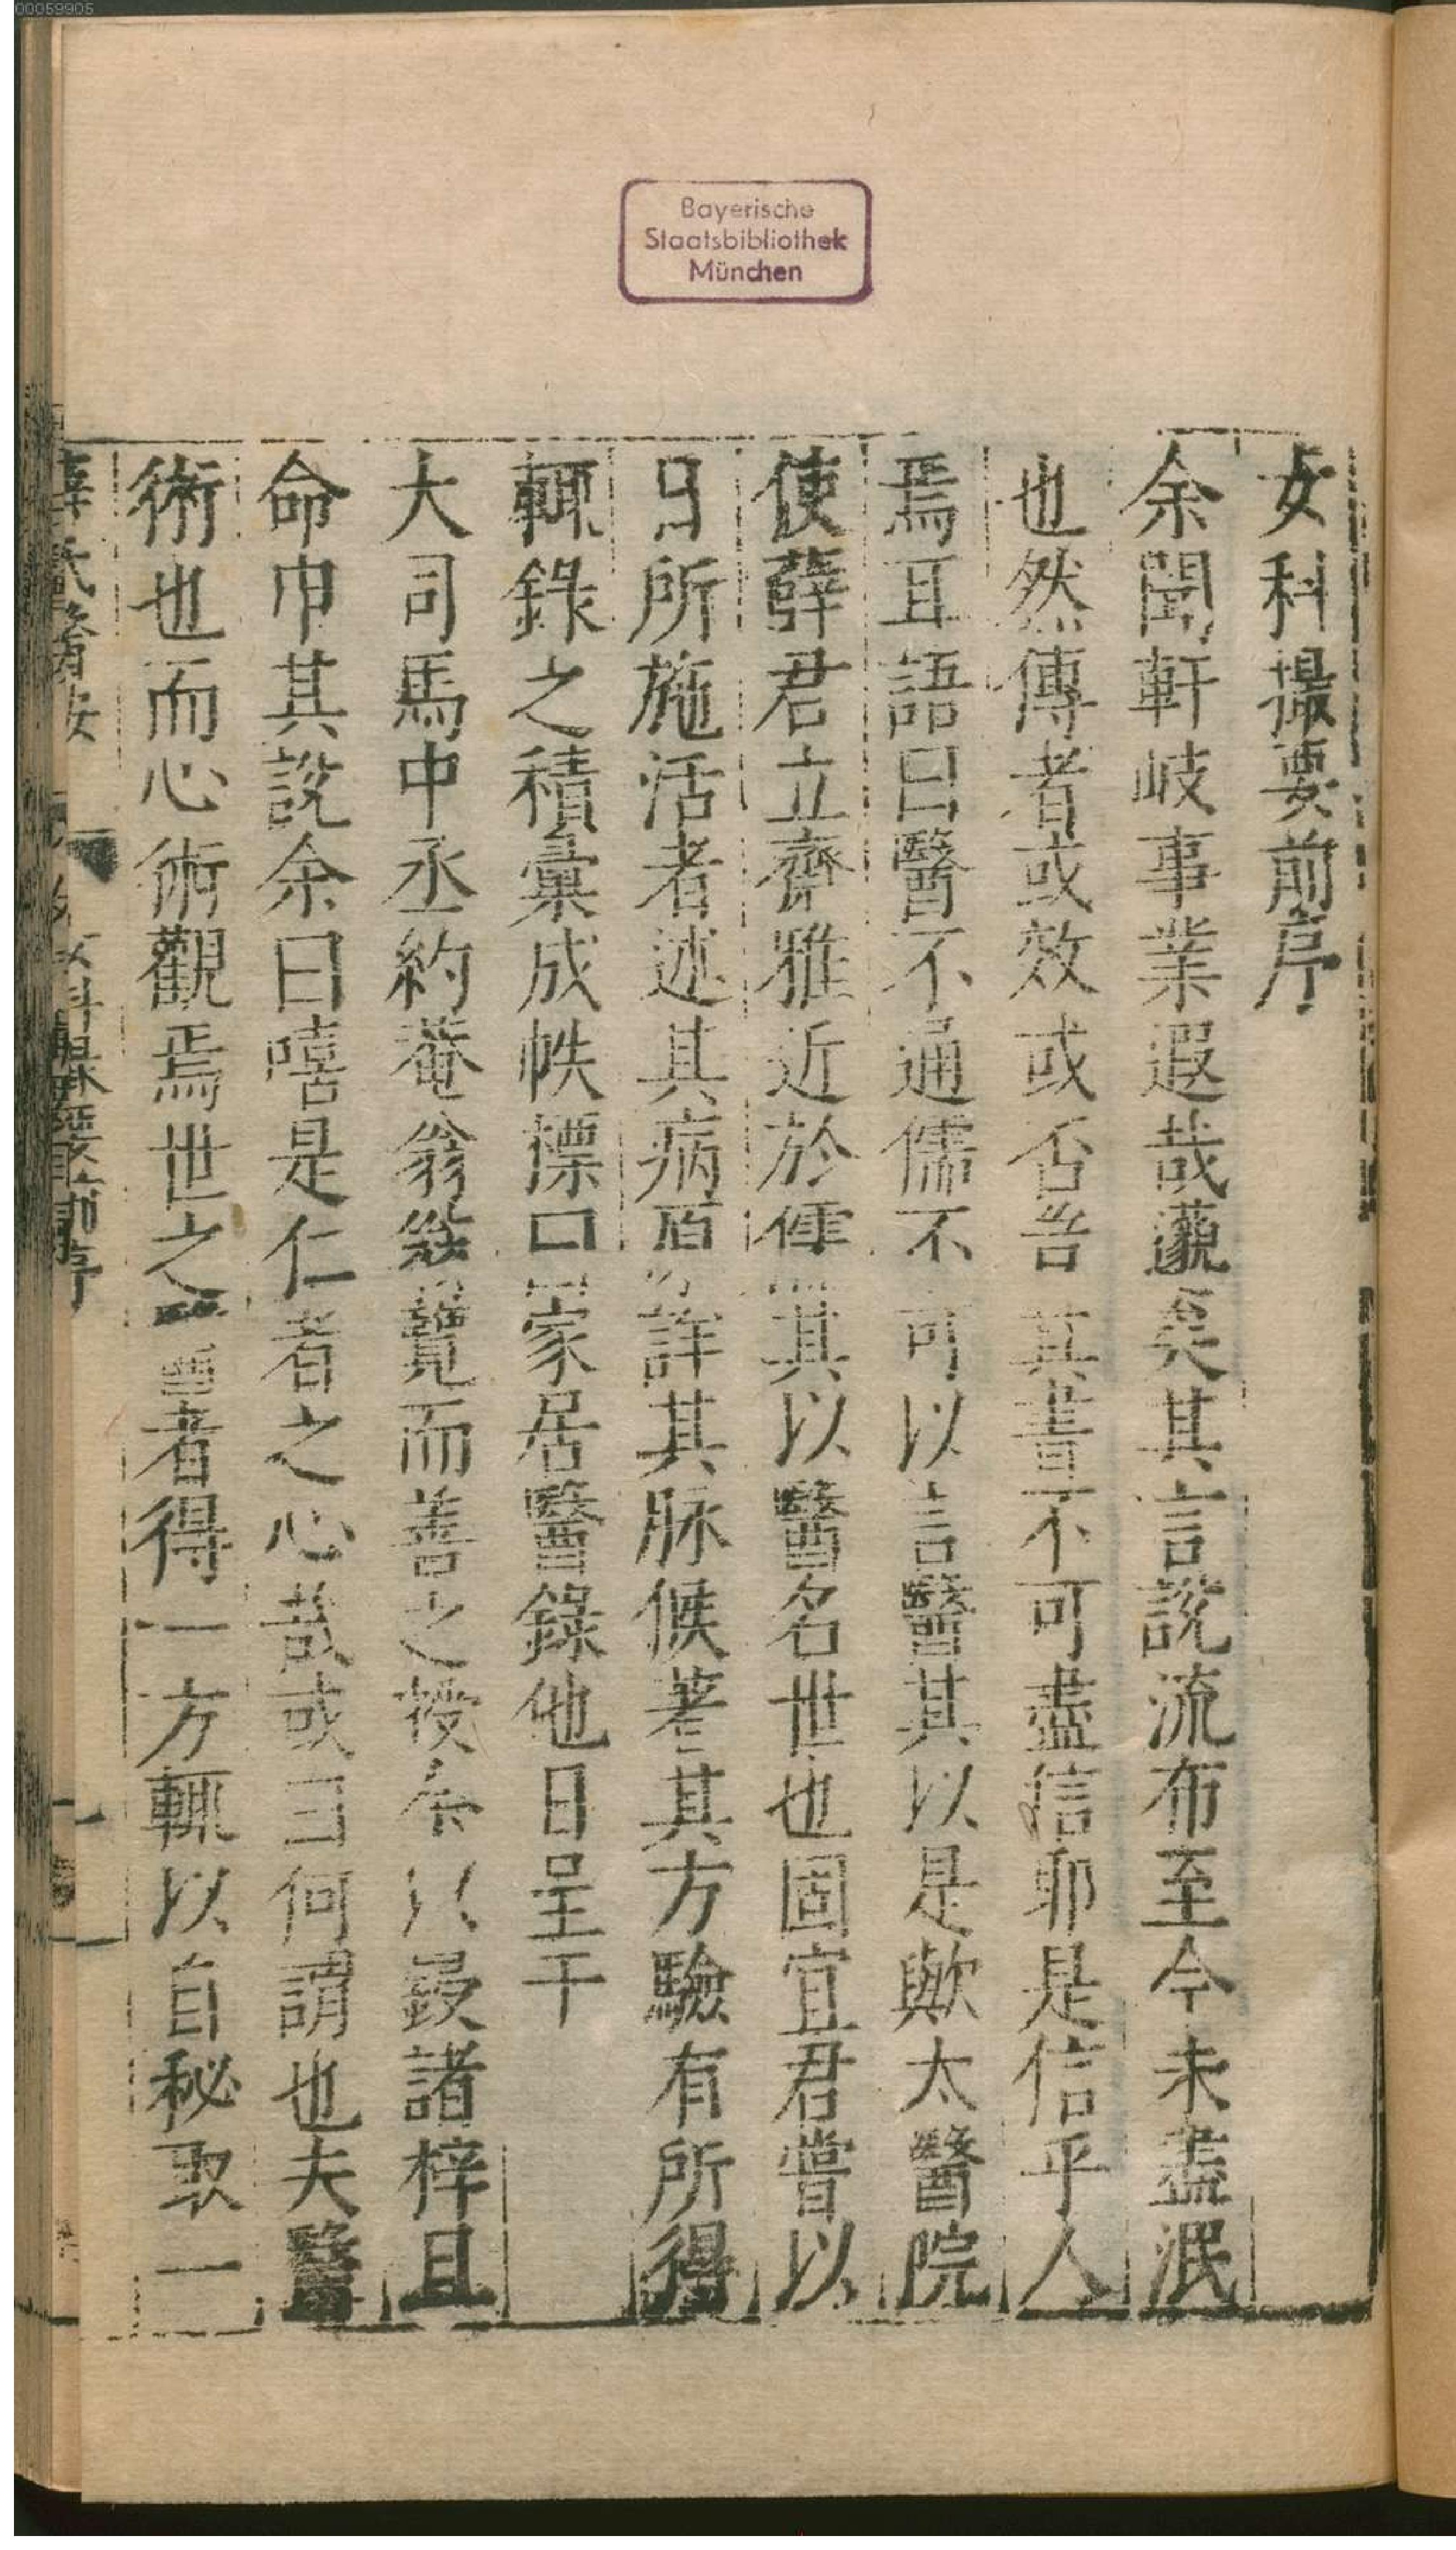 00059905
Bayerische
Staatsbibliothek
München
女科撮要前序
余聞軒岐事業遐哉藐矣其言說流布至今未盡泯
也然傳者或效或否吾其書不可盡信耶是信乎人
焉耳語曰醫不通儒不可以言醫其以是歟太醫院
使薛君立齋雅近於儒其以醫名世也固宜君嘗以
日所施活者述其病原詳其脉候著其方驗有所得
輒錄之積彙成帙摽曰家居醫錄他日呈干
大司馬中丞約菴翁翁覽而善之授余以鋟諸梓且
命巾其說余曰嘻是仁者之心哉或曰何謂也夫醫
術也而心術觀焉世之醫者得一方輒以自秘取一
薛氏醫按 女科撮要前序